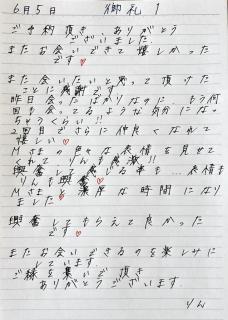 6月5日 御礼 1
ご予約 頂き ありがとう
ございました
またお会いできて 嬉しかった
です♡
また会いたいと思って頂けた
ことに感謝です
昨日会ったばかりなのに…もう何
回も会ってるような気分になっ
ちゃうくらい!!
2回目でさらに仲良くなれて
嬉しい♡
Mさまの色々な表情を見せて
くれて りんも感激!!
興奮して 感じる事も…表情も
りんも興奮♡
Mさまと濃厚な時間になり
ました♡
興奮してもらえて良かった
です♡
またお会いできるのを楽しみに
しています
ご縁を繋いで頂き
ありがとうございます
りん